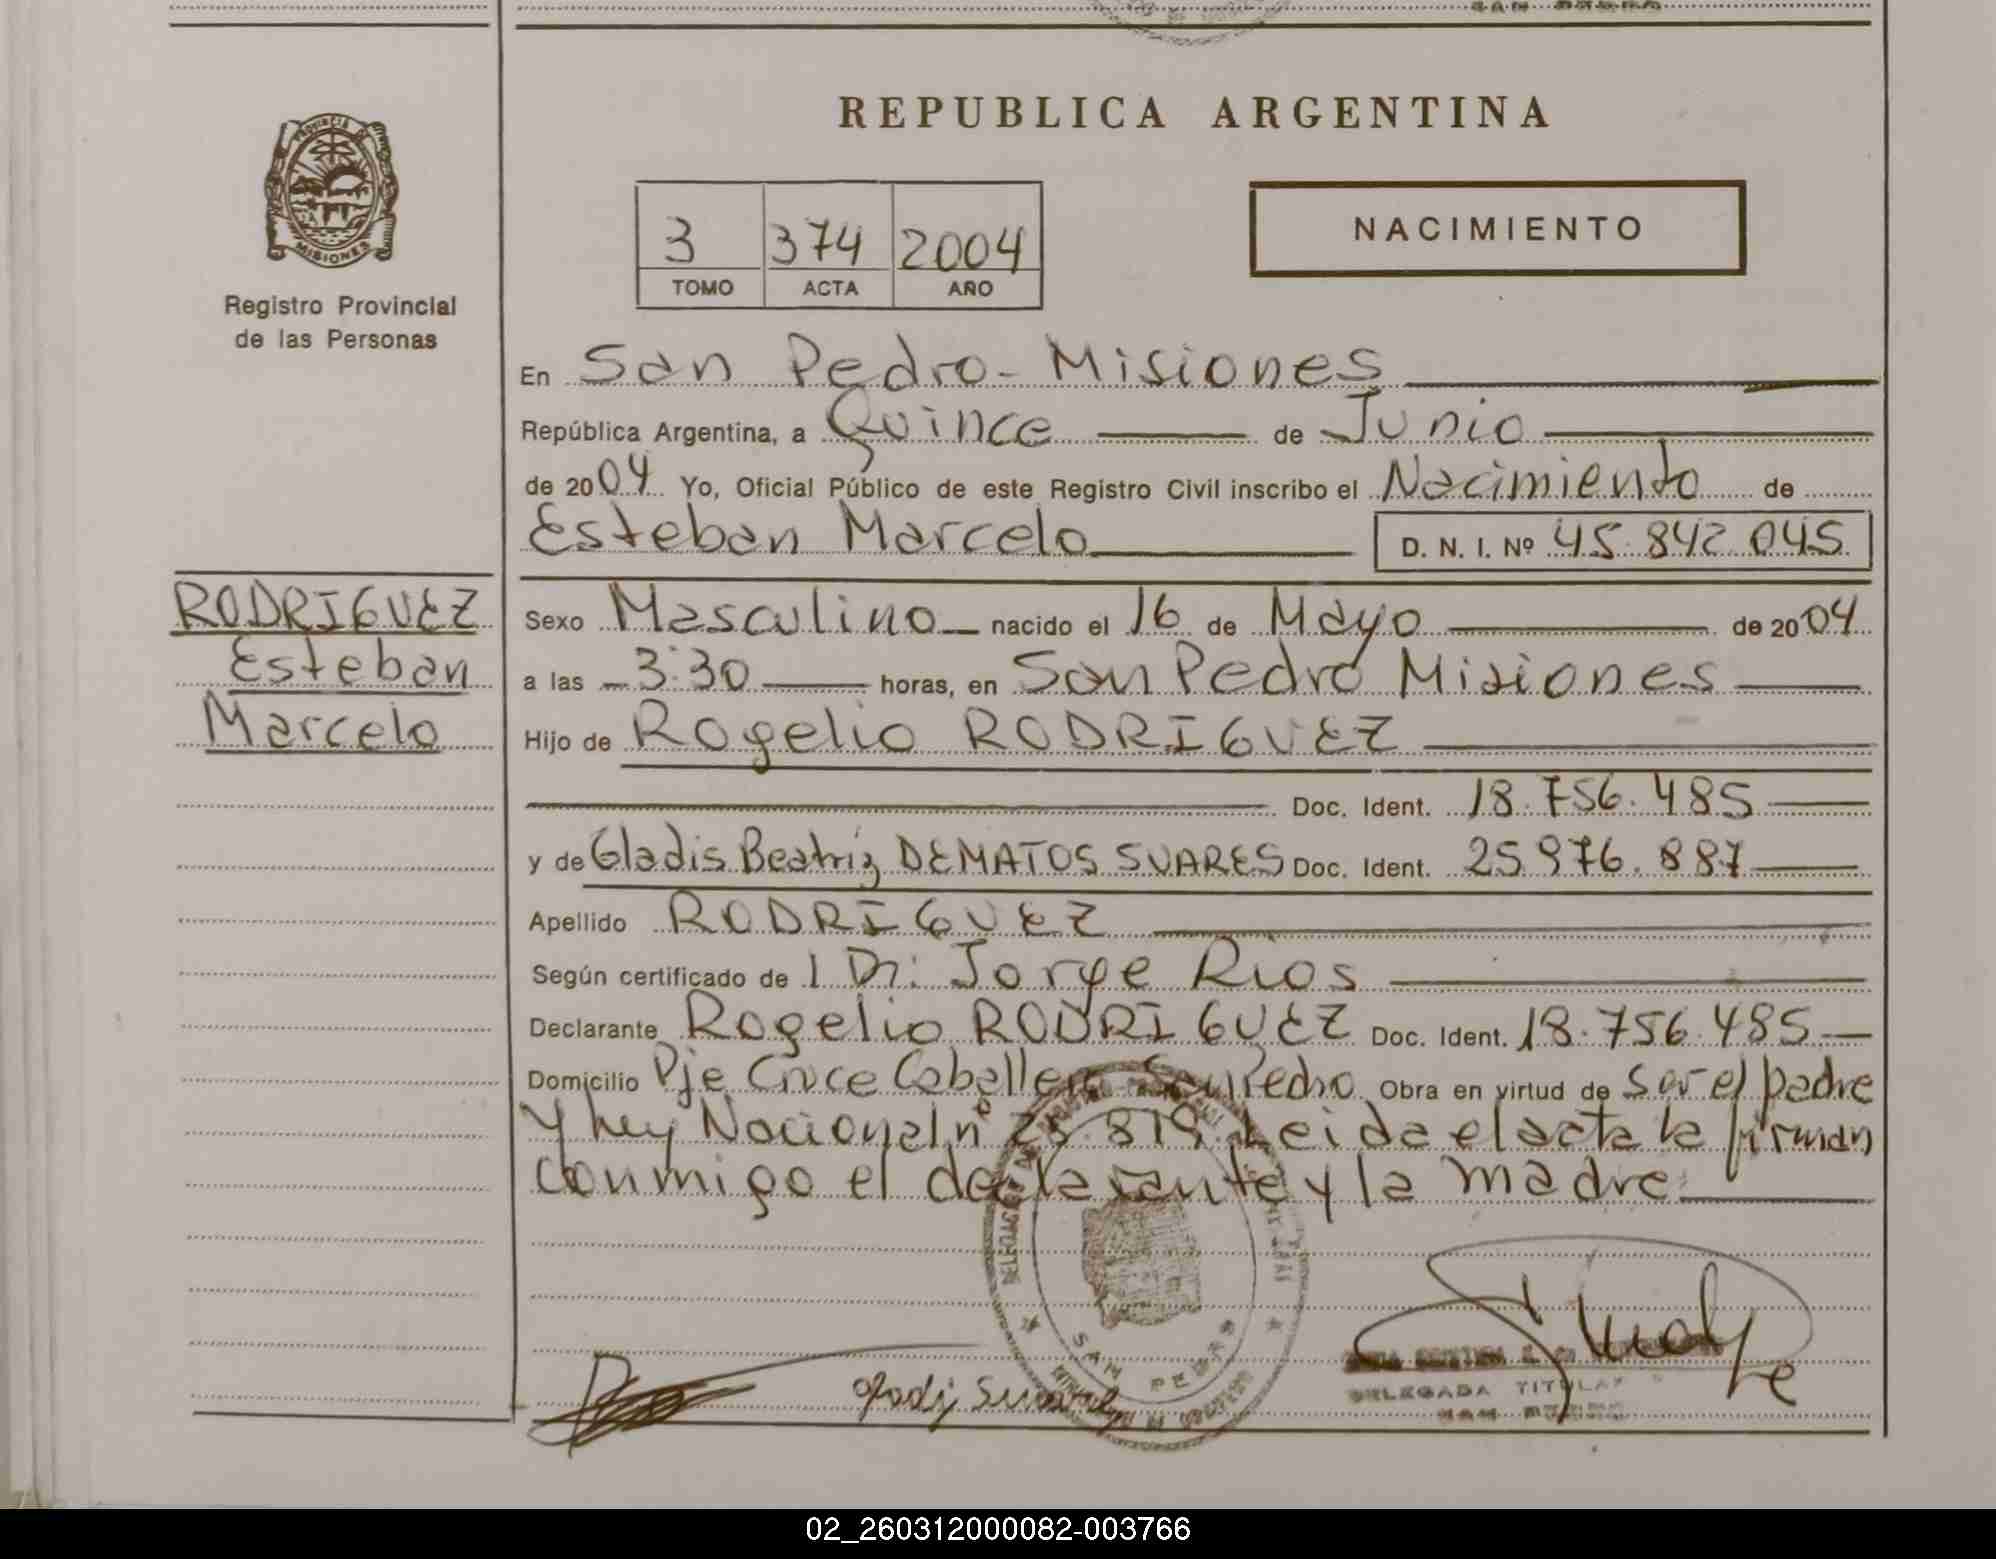 REPUBLICA ARGENTINA
PROVINCIA DE MISIONES
Registro Provincial
de las Personas
3 374 2004
TOMO ACTA AÑO
NACIMIENTO
En San Pedro - Misiones
República Argentina, a Quince de Junio
de 2004 Yo, Oficial Público de este Registro Civil inscribo el Nacimiento de
Esteban Marcelo D. N. I. Nº 45.842.045
RODRIGUEZ
Esteban
Marcelo
Sexo Masculino nacido el 16 de Mayo de 2004
a las 3:30 horas, en San Pedro Misiones
Hijo de Rogelio RODRIGUEZ
Doc. Ident. 18.756.485
y de Gladis Beatriz DEMATOS SUARES Doc. Ident. 25.976.887
Apellido RODRIGUEZ
Según certificado de l Dr: Jorge Rios
Declarante Rogelio RODRIGUEZ Doc. Ident. 18.756.485
Domicilio Pje Cruce Caballero San Pedro Obra en virtud de ser el padre
y ley Nacional nº 25.819. Leida el acta la firman
conmigo el declarante y la madre
SAN PEDRO
DELEGADA TITULAR
SAN PEDRO
02_260312000082-003766